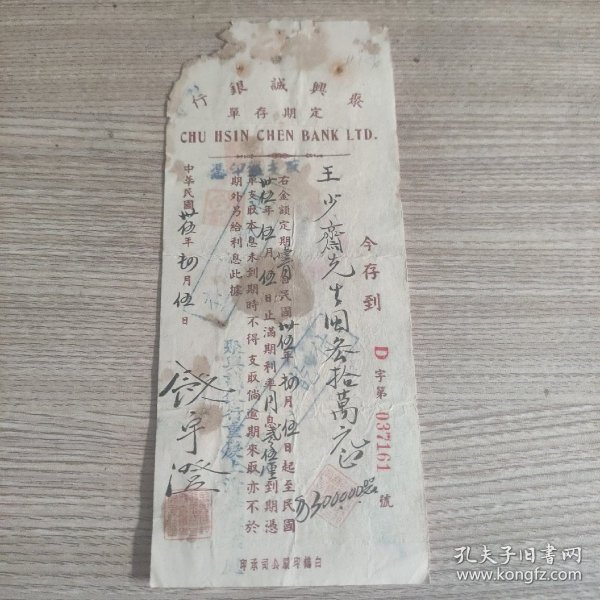 聚興誠銀行
定期存單
CHU HSIN CHEN BANK LTD.
今存到
D字第037161號
王少齋先生國幣叁拾萬元正
$300000.00
右金額定期 月自民國卅伍年 月伍日起至民國
卅伍年伍月伍日止滿期利率月息 到期憑
單支取本息未到期時不得支取倘逾期來取亦不於
期外另給利息此據
中華民國卅伍年 月伍日
印承司公 印 白
孔夫子旧书网
www.kongfz.com